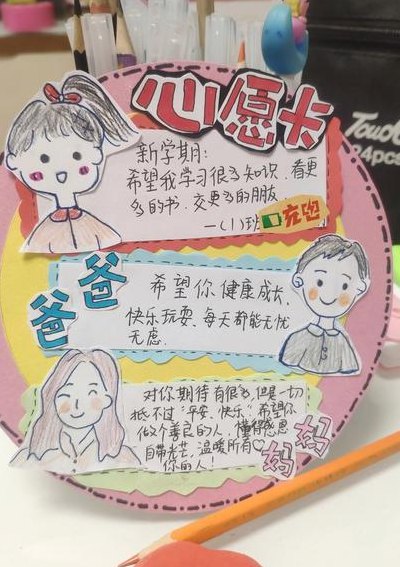 心愿卡
新学期:
希望我学习很多知识、看更
多的书、交更多的朋友
一(1)班
爸爸
希望你健康成长、
快乐玩耍、每天都能无忧
无虑.
对你期待有很多,但是一切
抵不过"平安、快乐"希望你
做个善良的人,懂得感恩
自带光芒,温暖所有♡
你的人!
妈妈
Touch
24pcs